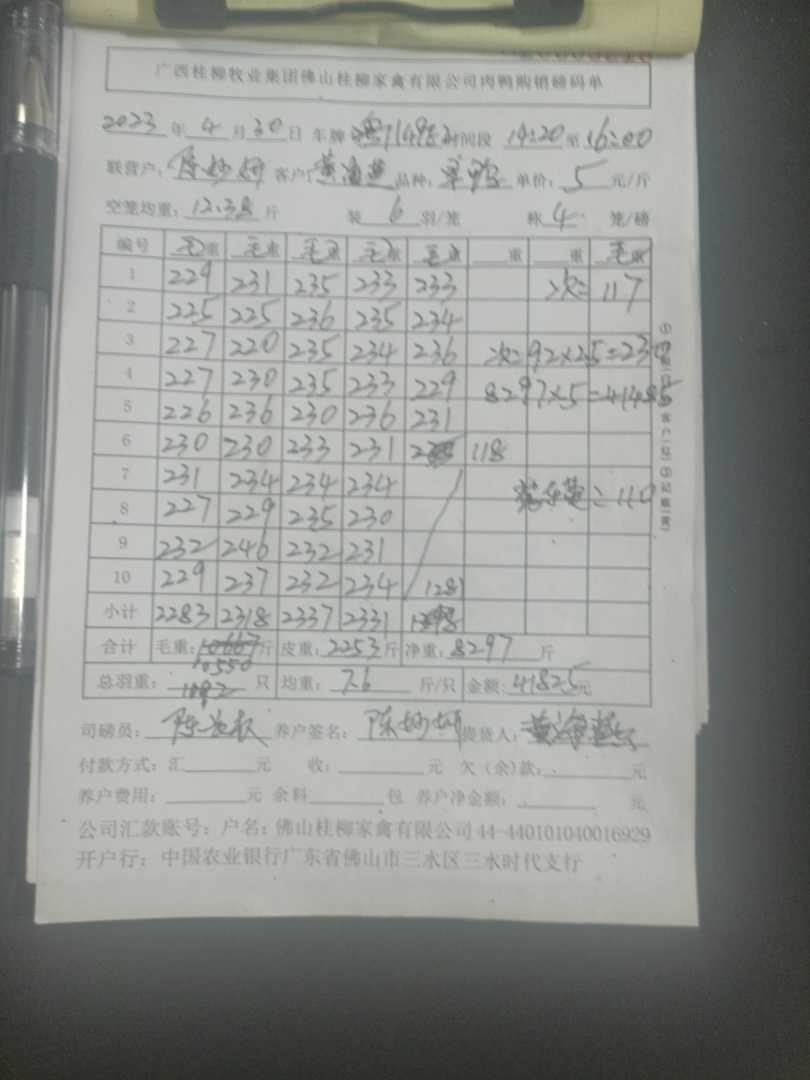 广西桂柳牧业集团佛山桂柳家禽有限公司肉鸭购销磅码单
2023 年 4 月 30 日 车牌 时间段 14:20 至 16:00
联营户: 陈妙娟 客户: 黄海燕 品种: 单价: 5 元/斤
空笼均重: 12.38 斤 装 6 羽/笼 称 4 笼/磅
编号 毛重 毛重 毛重 毛重 毛重 重 重 毛重
1 229 231 235 233 233 次= 117
2 225 225 236 235 234
3 227 220 235 234 236 次=92×2.5=230
4 227 230 235 233 229 8297×5=41485
5 226 236 230 236 231
6 230 230 233 231 118
7 231 234 234 234
8 227 229 235 230 = 110
9 232 246 232 231
10 229 237 232 234 1281
小计 2283 2318 2337 2331
合计 毛重: 10667 斤 皮重: 2253 斤 净重: 8297 斤
10550
总羽重: 1092 只 均重: 7.6 斤/只 金额: 41825 元
司磅员: 养户签名: 陈妙娟 提货人: 黄海燕
付款方式: 汇 元 收: 元 欠(余)款: 元
养户费用: 元 余料 包 养户净金额: 元
公司汇款账号: 户名: 佛山桂柳家禽有限公司 44-440101040016929
开户行: 中国农业银行广东省佛山市三水区三水时代支行